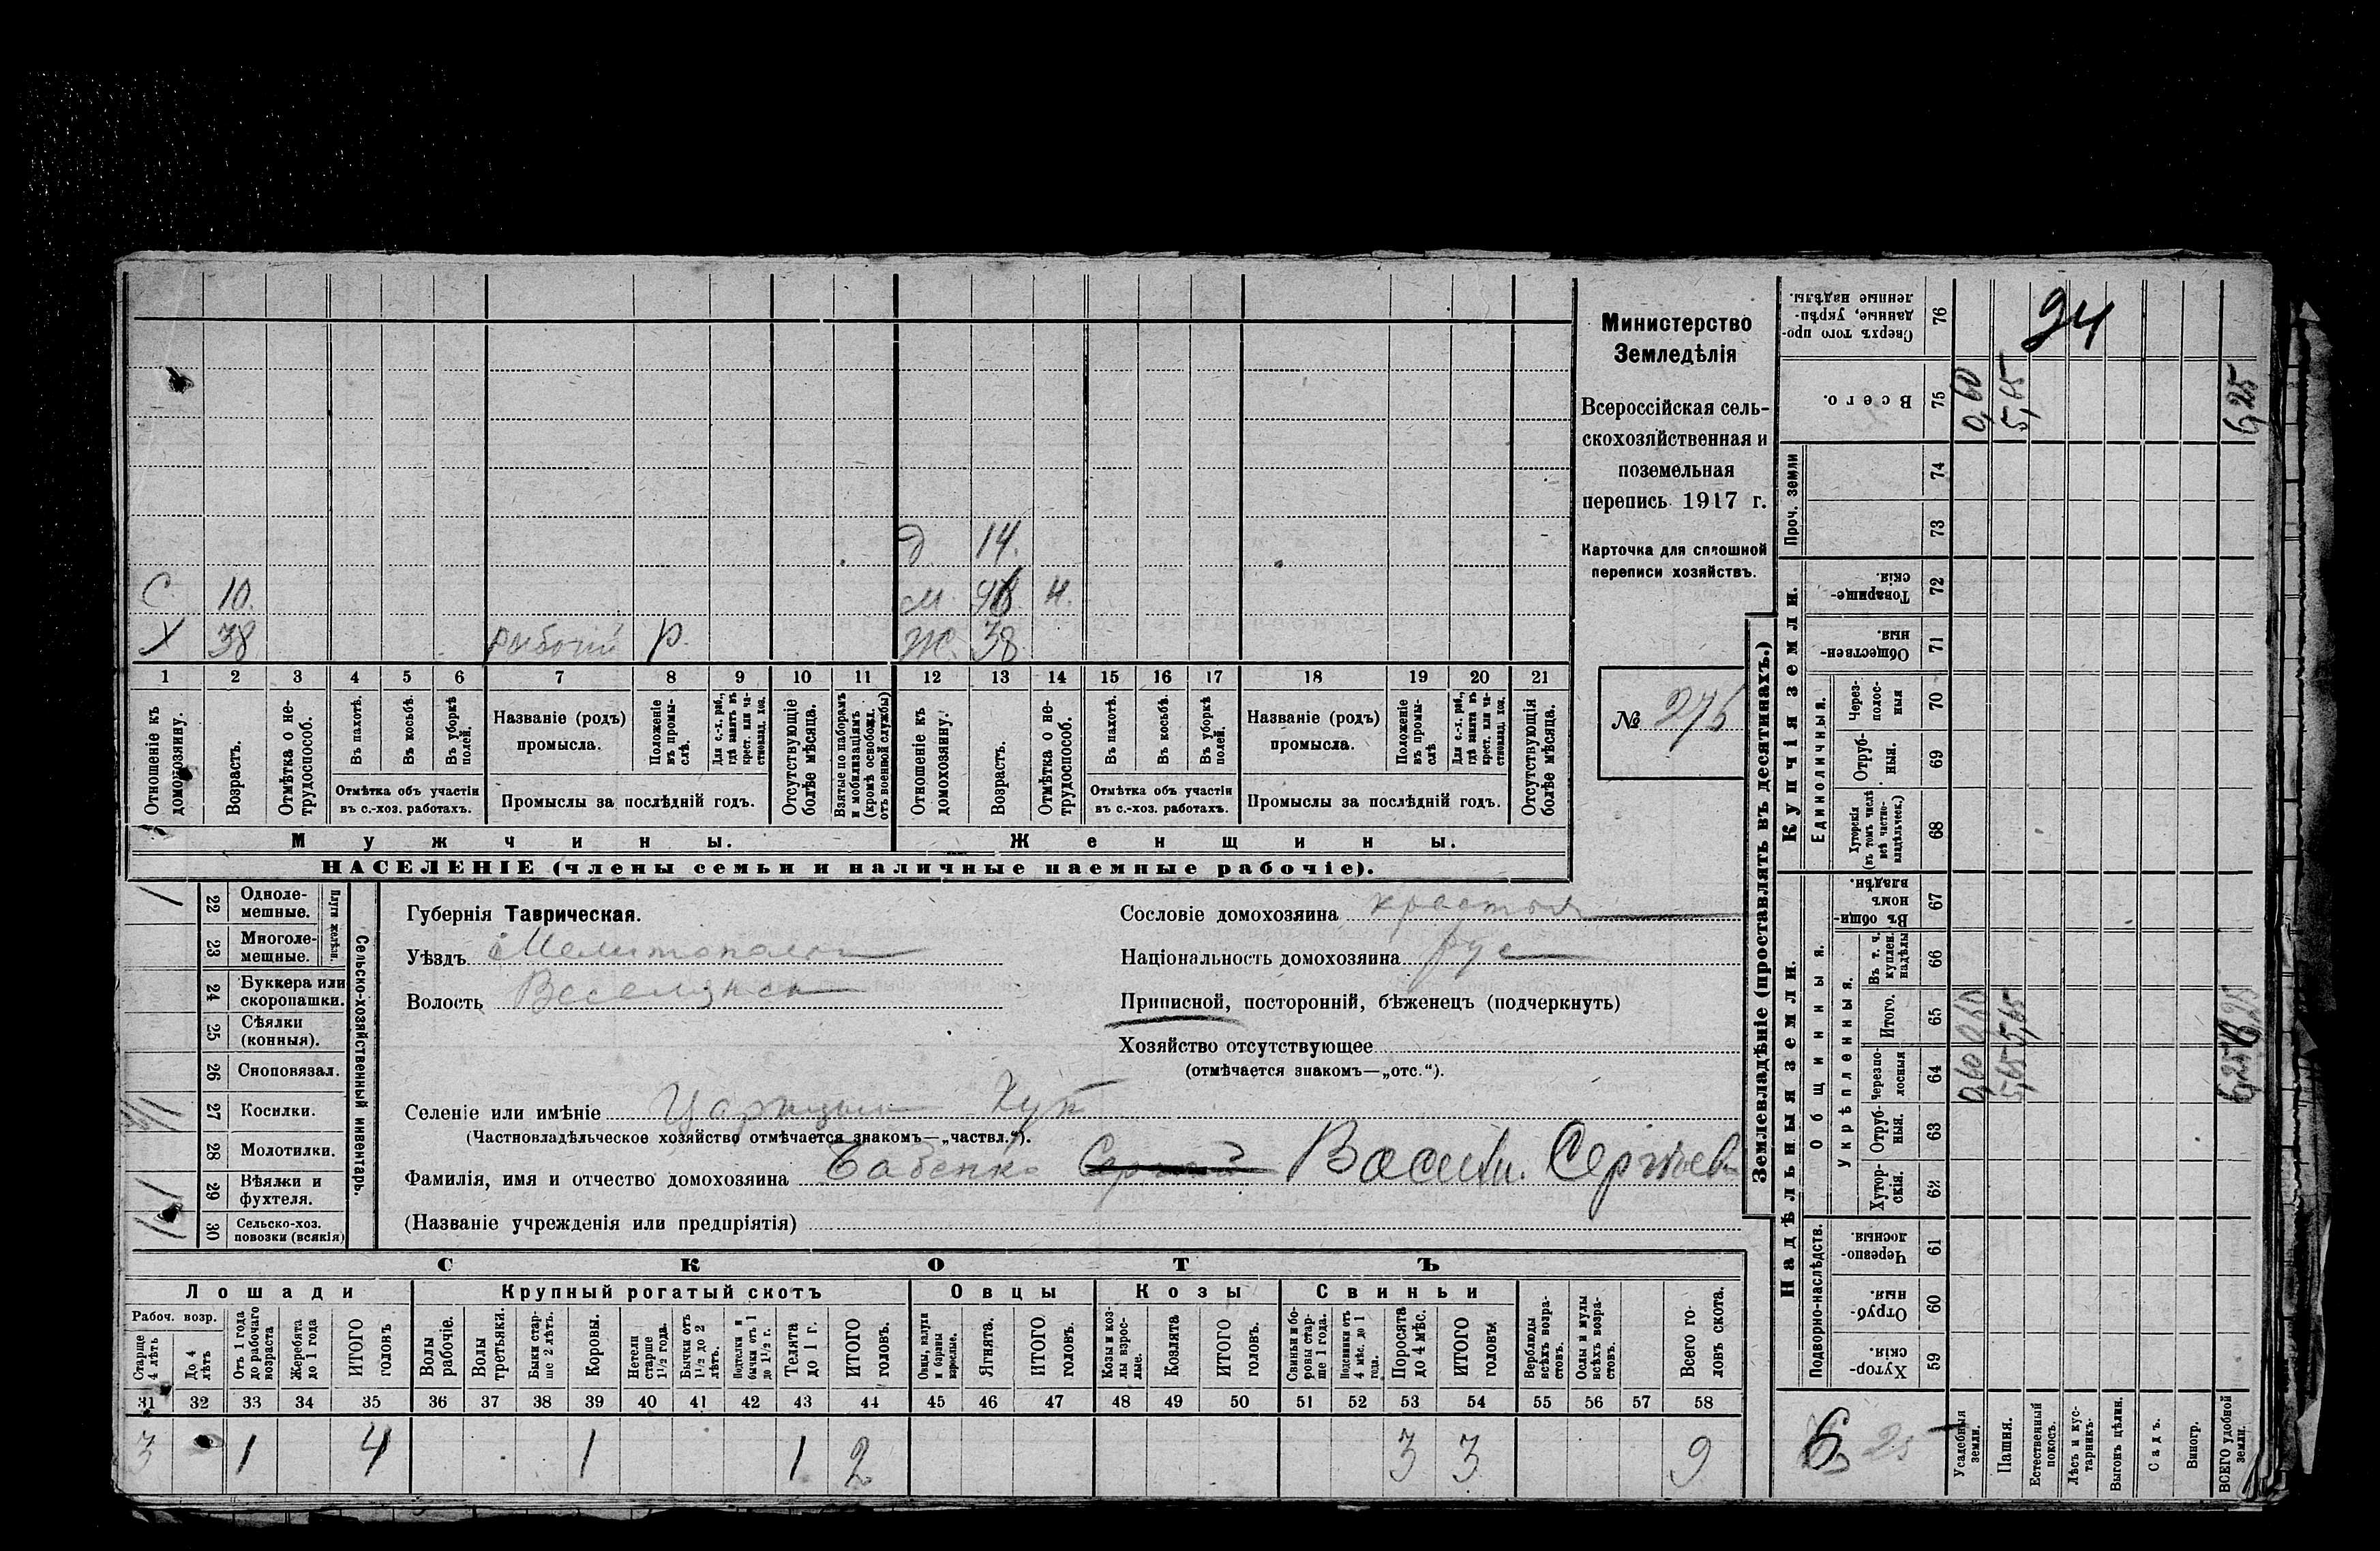 Министерство
Земледѣлія
Всероссійская сель-
скохозяйственная и
поземельная
перепись 1917 г.
Карточка для сплошной
переписи хозяйствъ.
№ 276
Д 14.
С. 10. М. Н.
Х 38 рабочій р. Ж. 38
1 2 3 4 5 6 7 8 9 10 11 12 13 14 15 16 17 18 19 20 21
Отношеніе къ домохозяину.
Возрастъ.
Отмѣтка о не-трудоспособ.
Въ пахотѣ.
Въ косьбѣ.
Въ уборкѣ полей.
Отмѣтка объ участіи
въ с.-хоз. работахъ.
Названіе (родъ)
промысла.
Положеніе въ промы-слѣ.
Для с.-х. раб., гдѣ занятъ въ крест. или ча-стновлад. хоз.
Промыслы за послѣдній годъ.
Отсутствующіе болѣе мѣсяца.
Взятые по наборамъ и мобилизаціямъ (кромѣ освобожд. отъ военной службы)
Отношеніе къ домохозяину.
Возрастъ.
Отмѣтка о не-трудоспособ.
Въ пахотѣ.
Въ косьбѣ.
Въ уборкѣ полей.
Отмѣтка объ участіи
въ с.-хоз. работахъ.
Названіе (родъ)
промысла.
Положеніе въ промы-слѣ
Для с.-х. раб., гдѣ занята въ крест. или ча-стновлад. хоз.
Промыслы за послѣдній годъ.
Отсутствующія болѣе мѣсяца.
Мужчины. Женщины.
НАСЕЛЕНІЕ (члены семьи и наличные наемные рабочіе).
Сельско-хозяйственный инвентарь.
Плуги желѣзн.
/ 22 Одноле-мешные.
23 Многоле-мещные.
24 Буккера или скоропашки.
25 Сѣялки (конныя).
26 Сноповязал.
27 Косилки.
28 Молотилки.
29 Вѣялки и фухтеля.
30 Сельско-хоз. повозки (всякія)
Губернія Таврическая.
Уѣздъ Мелитопольск
Волость Веселянск
Сословіе домохозяина крестьян
Національность домохозяина рус
Приписной, посторонній, бѣженецъ (подчеркнуть)
Хозяйство отсутствующее
(отмѣчается знакомъ—„отс.“).
Селеніе или имѣніе Царицын Хут
(Частновладѣльческое хозяйство отмѣчается знакомъ—„частвл.“).
Фамилія, имя и отчество домохозяина Бабенко Васили. Сергѣев
(Названіе учрежденія или предпріятія)
СКОТЪ
Лошади Крупный рогатый скотъ Овцы Козы Свиньи
Рабоч. возр.
Старше 4 лѣтъ
До 4 лѣтъ
Отъ 1 года до рабочаго возраста
Жеребята до 1 года
ИТОГО головъ
Волы рабочіе.
Волы третьяки.
Быки стар-ше 2 лѣтъ.
Коровы.
Нетели старше 1 1/2 года.
Бычки отъ 1 1/2 до 2 лѣтъ.
Подтелки и бычки отъ 1 до 1 1/2 г.
Телята до 1 г.
ИТОГО головъ.
Овцы, валухи и бараны взрослые.
Ягнята.
ИТОГО головъ.
Козы и коз-лы взрос-лые.
Козлята
ИТОГО головъ.
Свиньи и бо-ровы стар-ше 1 года.
Подсвинки отъ 4 мѣс. до 1 года.
Поросята до 4 мѣс.
ИТОГО головъ
Верблюды всѣхъ возра-стовъ.
Ослы и мулы всѣхъ возра-стовъ.
Всего го-ловъ скота.
31 32 33 34 35 36 37 38 39 40 41 42 43 44 45 46 47 48 49 50 51 52 53 54 55 56 57 58
3 1 4 1 1 2 3 3 9
Землевладѣніе (проставлять въ десятинахъ.)
Купчія земли.
Единоличныя.
Надѣльныя земли.
Общинныя.
Укрѣпленныя.
Подворно-наслѣдств.
Проч. земли
Сверхъ того про-данные, укрѣп-ленные надѣлы. 76 94
Всего. 75 0,60 5,65 6,25
74
73
Товарище-скія. 72
Обществен-ныя. 71
Через-полос-ныя 70
Отруб-ныя. 69
Хуторскія (въ томъ числѣ всѣ частно-владѣльческ.) 68
Въ общи-номъ владѣн. 67
Въ т. ч. куплен. надѣлы 66
Итого. 65 0,60 5,65 6,25
Черезпо-лосныя 64 0,60 5,65 6,25
Отруб-ныя. 63
Хутор-скія. 62
Черезпо-лосныя. 61
Отруб-ныя. 60
Хутор-скія. 59
6 25
Усадебныя земли.
Пашня.
Естественный покосъ.
Лѣсъ и кус-тарникъ.
Выгонъ цѣлин.
Садъ.
Виногр.
ВСЕГО удобной земли.